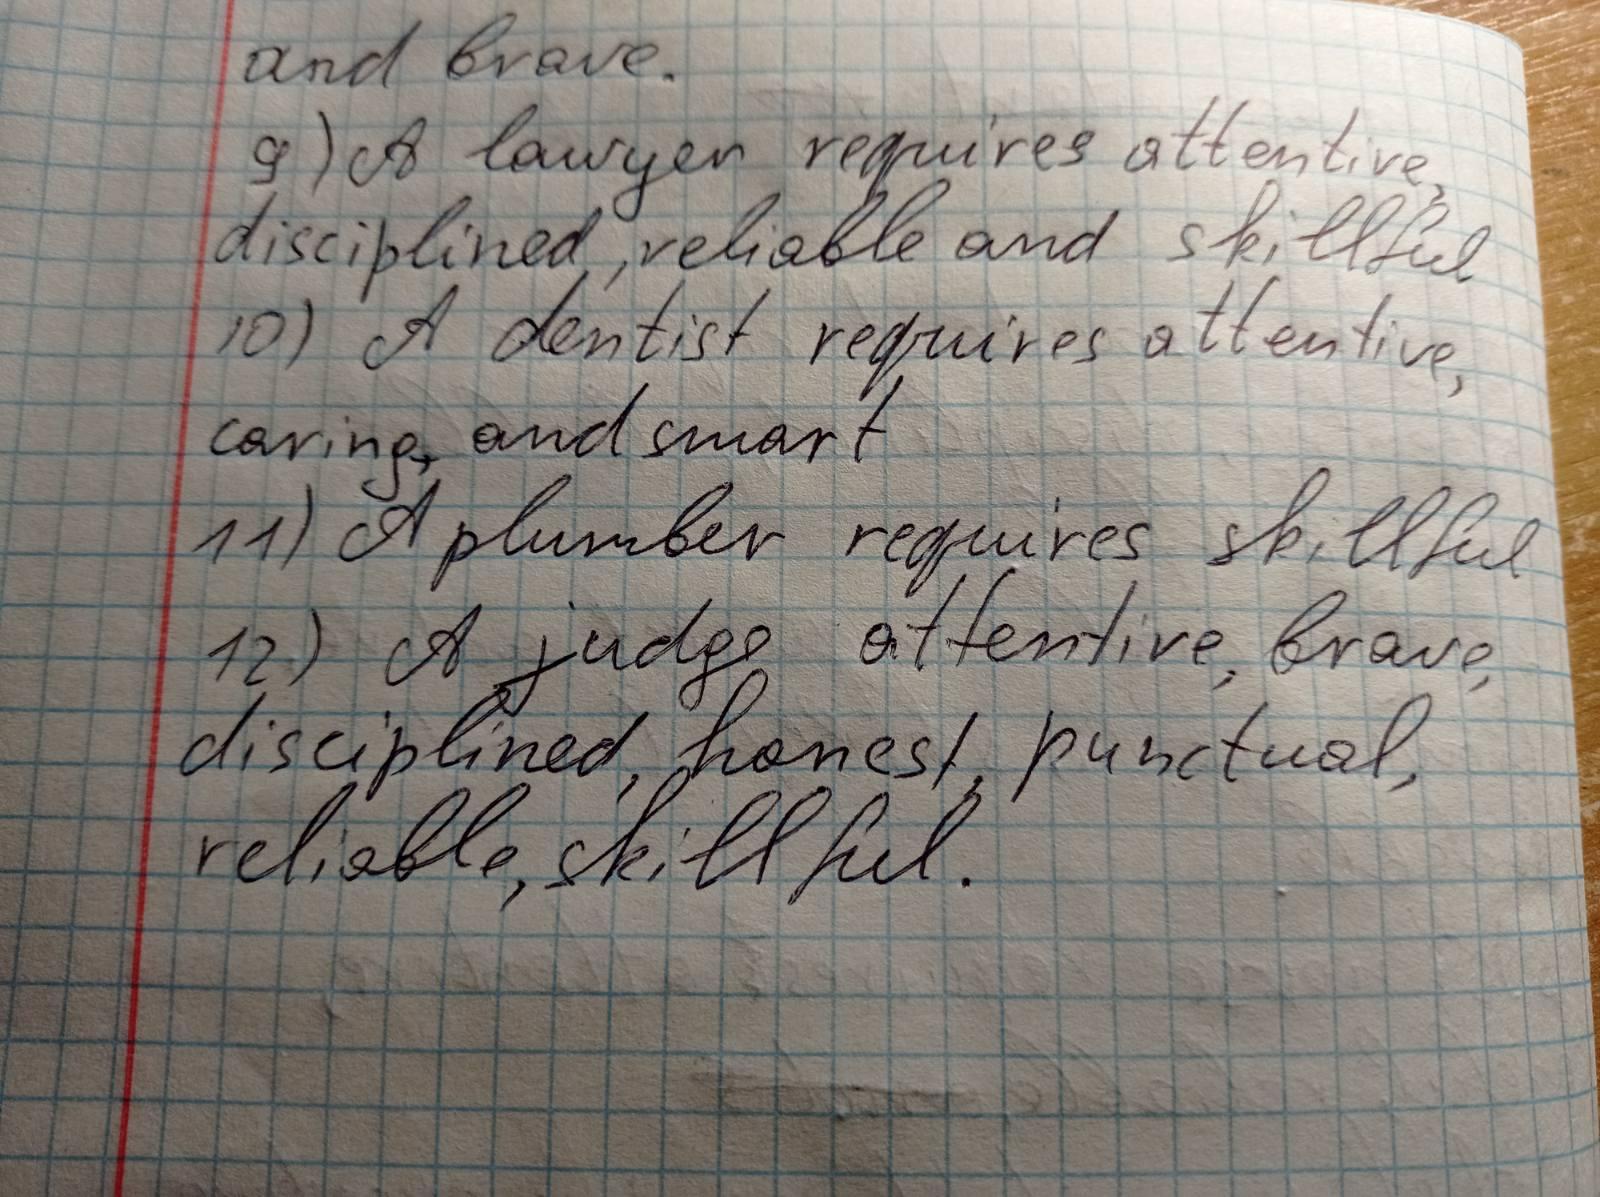 and brave.
9) A lawyer requires attentive,
disciplined, reliable and skillful
10) A dentist requires attentive,
caring, and smart
11) A plumber requires skillful
12) A judge attentive, brave,
disciplined, honest, punctual,
reliable, skillful.